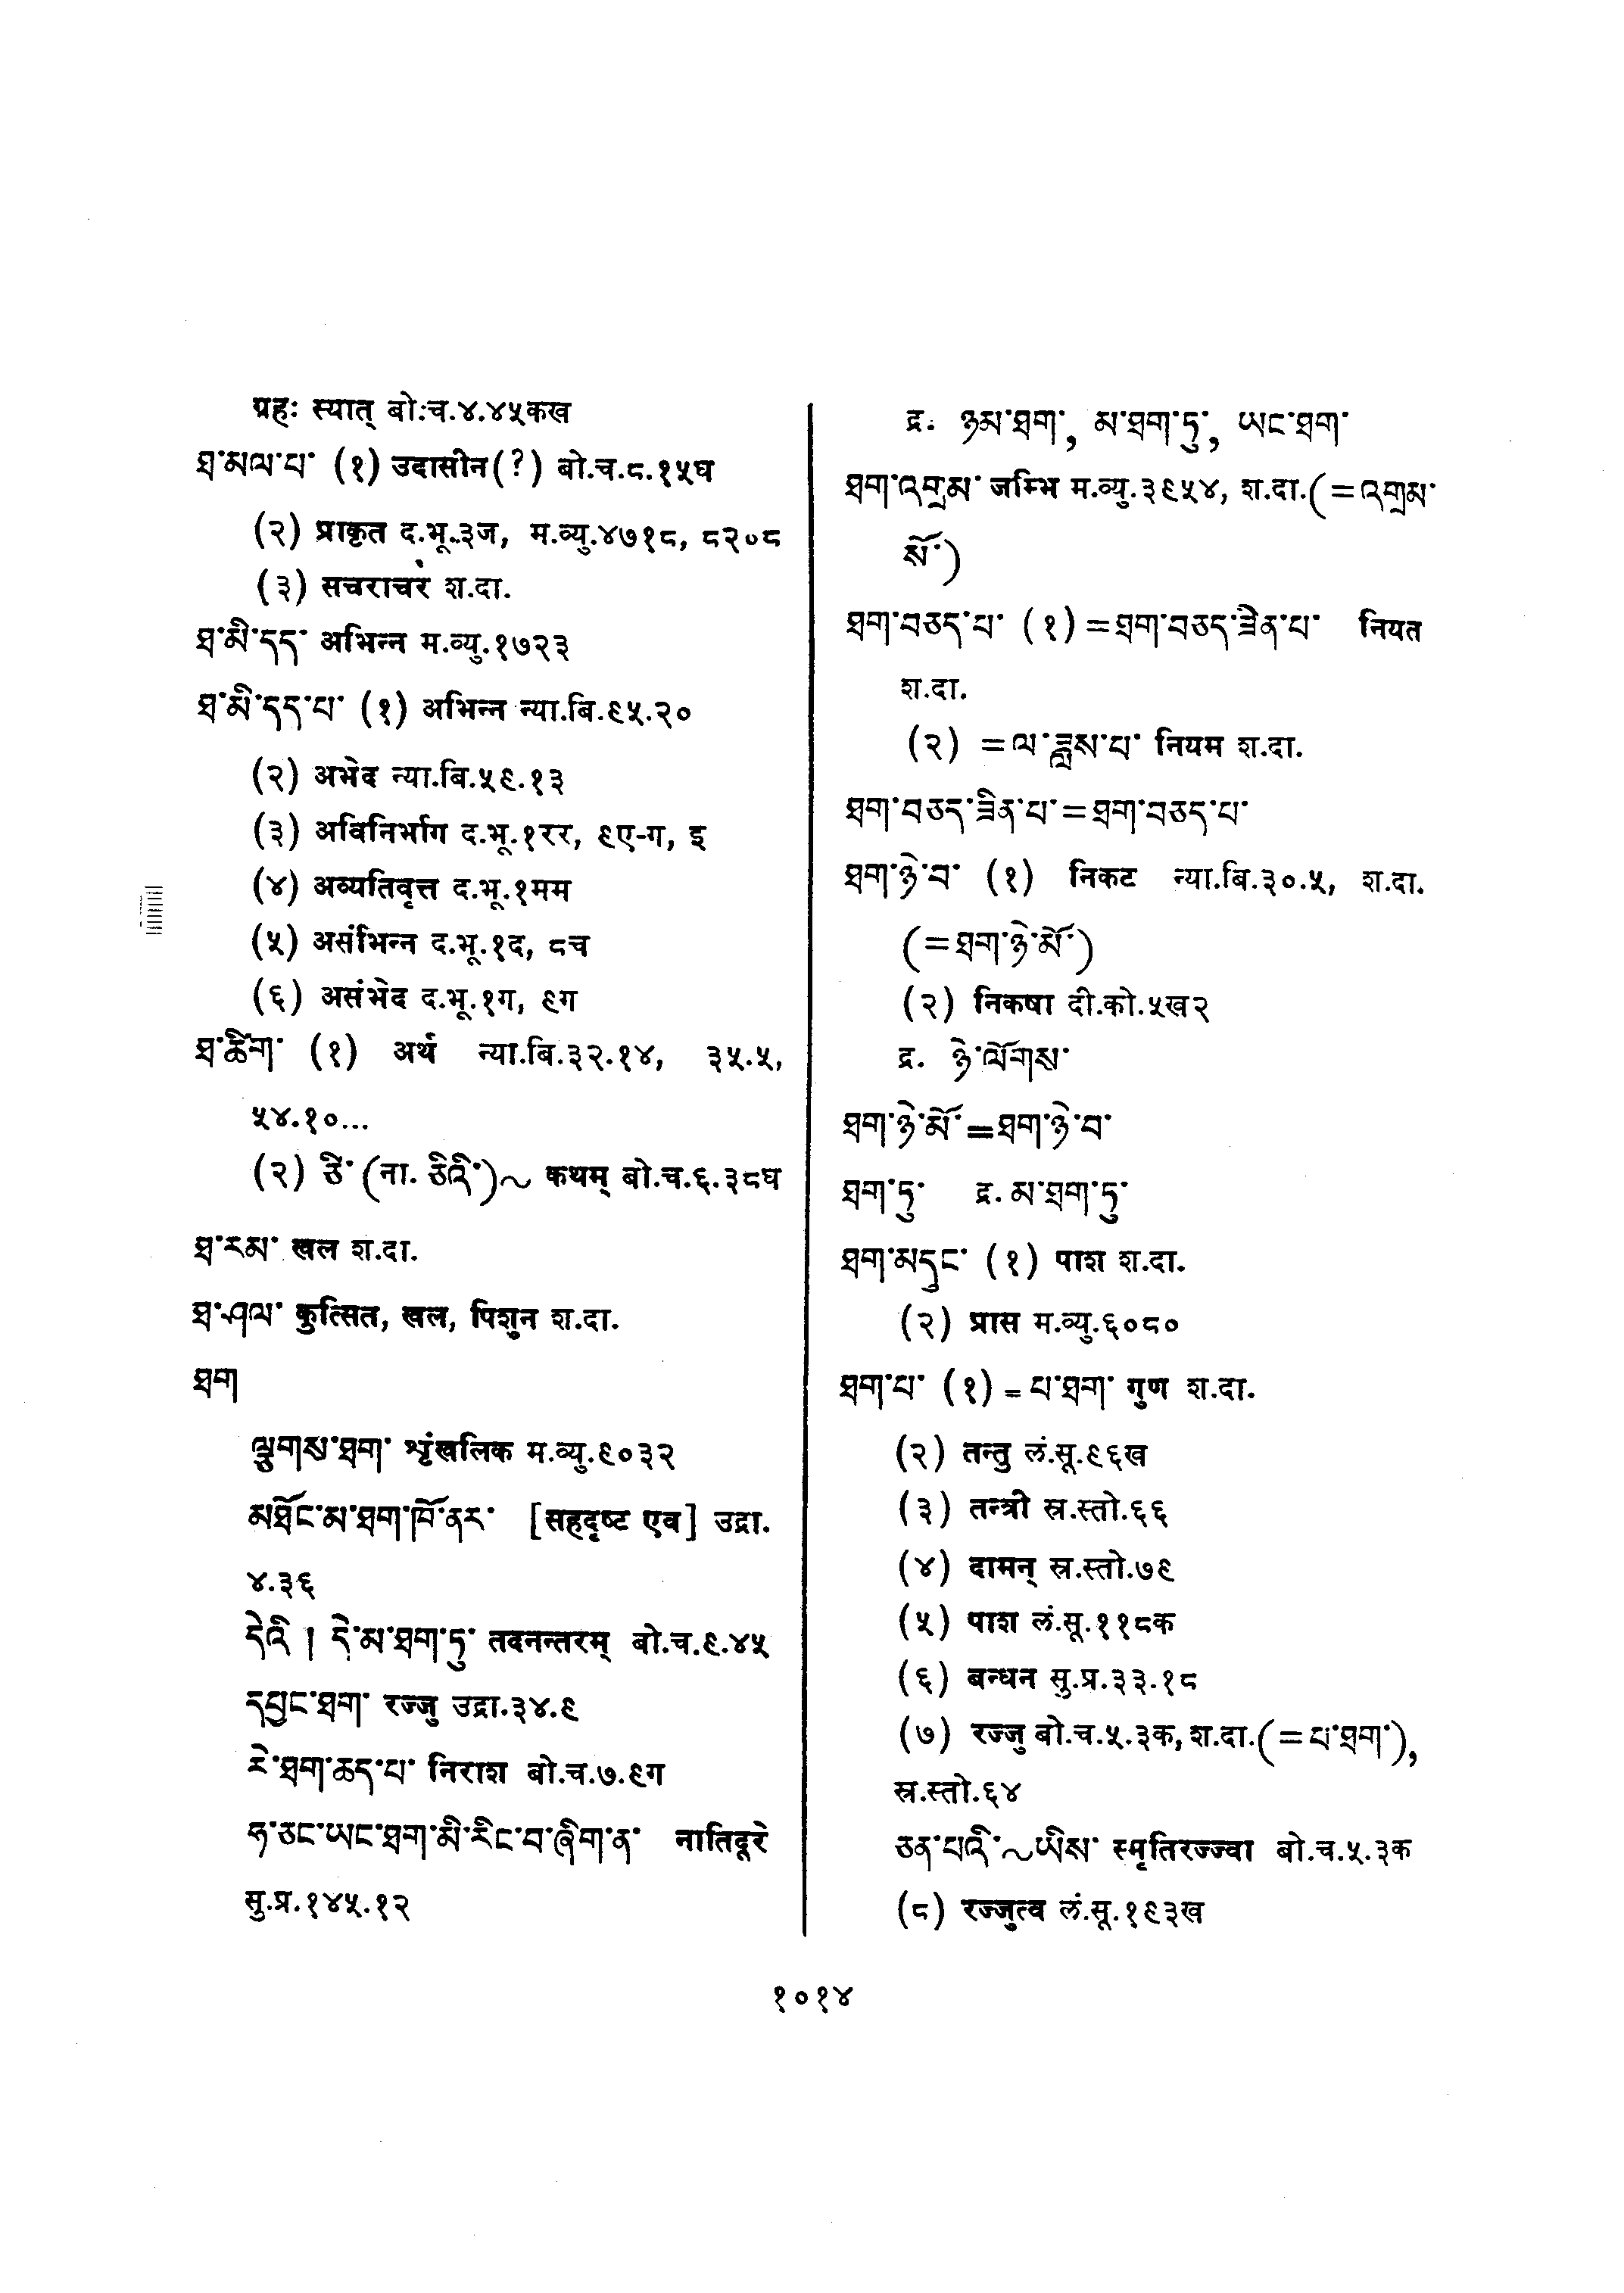 ग्रहः स्यात् बो.च.४.४५कख
ཐ་མལ་པ་ (१) उदासीन(?) बो.च.८.१५घ
(२) प्राकृत द.भू.३ज, म.व्यु.४७१८, ८२०८
(३) सचराचरं श.दा.
ཐ་མི་དད་ अभिन्न म.व्यु.१७२३
ཐ་མི་དད་པ་ (१) अभिन्न न्या.बि.९५.२०
(२) अभेद न्या.बि.५९.१३
(३) अविनिर्भाग द.भू.१रर, ९ए-ग, इ
(४) अव्यतिवृत्त द.भू.१मम
(५) असंभिन्न द.भू.१द, ८च
(६) असंभेद द.भू.१ग, ९ग
ཐ་ཚིག་ (१) अर्थ न्या.बि.३२.१४, ३५.५,
५४.१०...
(२) ཅི་ (ना. ཅིའི་)~ कथम् बो.च.६.३८घ
ཐ་རམ་ खल श.दा.
ཐ་ཤལ་ कुत्सित, खल, पिशुन श.दा.
ཐག
ལྕུགས་ཐག་ शृंखलिक म.व्यु.९०३२
མཐོང་མ་ཐག་ཁོ་ནར་ [सहदृष्ट एव] उद्रा.
४.३६
དེའི । དེ་མ་ཐག་ཏུ་ तदनन्तरम् बो.च.९.४५
དབྱང་ཐག་ रज्जु उद्रा.३४.९
རེ་ཐག་ཆད་པ་ निराश बो.च.७.९ग
ཧ་ཅང་ཡང་ཐག་མི་རིང་བ་ཞིག་ན་ नातिदूरे
सु.प्र.१४५.१२
द्र. ཉམ་ཐག་, མ་ཐག་ཏུ་, ཡང་ཐག་
ཐག་འགྲམ་ जम्भि म.व्यु.३९५४, श.दा.(=འགྲམ་
སོ་)
ཐག་བཅད་པ་ (१)=ཐག་བཅད་ཟིན་པ་ नियत
श.दा.
(२) =ལ་ཟླས་པ་ नियम श.दा.
ཐག་བཅད་ཟིན་པ་=ཐག་བཅད་པ་
ཐག་ཉེ་བ་ (१) निकट न्या.बि.३०.५, श.दा.
(=ཐག་ཉེ་མོ་)
(२) निकषा दी.को.५ख२
द्र. ཉེ་ལོགས་
ཐག་ཉེ་མོ་=ཐག་ཉེ་བ་
ཐག་ཏུ་ द्र. མ་ཐག་ཏུ་
ཐག་མདུང་ (१) पाश श.दा.
(२) प्रास म.व्यु.६०८०
ཐག་པ་ (१)=པ་ཐག་ गुण श.दा.
(२) तन्तु लं.सू.९६ख
(३) तन्त्री स्र.स्तो.६६
(४) दामन् स्र.स्तो.७९
(५) पाश लं.सू.११८क
(६) बन्धन सु.प्र.३३.१८
(७) रज्जु बो.च.५.३क, श.दा.(=པ་ཐག་),
स्र.स्तो.६४
ཅན་པའི་~ཡིས་ स्मृतिरज्ज्वा बो.च.५.३क
(८) रज्जुत्व लं.सू.१९३ख
१०१४